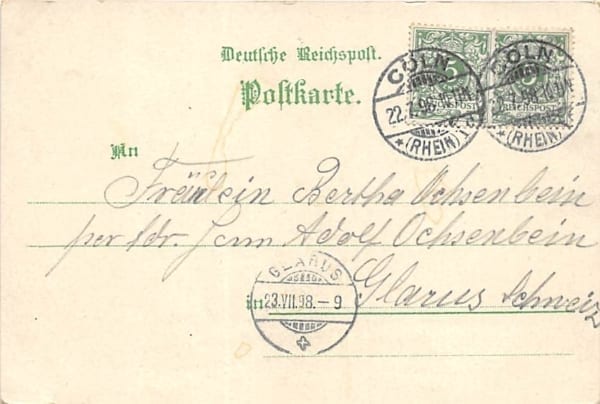 Deutsche Reichspost.
Postkarte.
5
REICHSPOST
CÖLN
22.7.98
*(RHEIN)
CÖLN
7.98
*(RHEIN)
An
Fräulein Bertha Ochsenbein
per Adr. Adolf Ochsenbein
in Glarus Schweiz
GLARUS
23.VII.98.–9